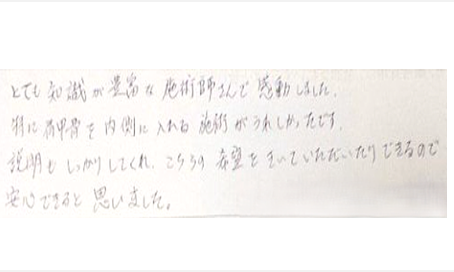 とても知識が豊富な施術師さんで感動しました。
特に肩甲骨を内側に入れる施術がうれしかったです。
説明もしっかりしてくれ、こちらの希望をきいていただいたりできるので
安心できると思いました。